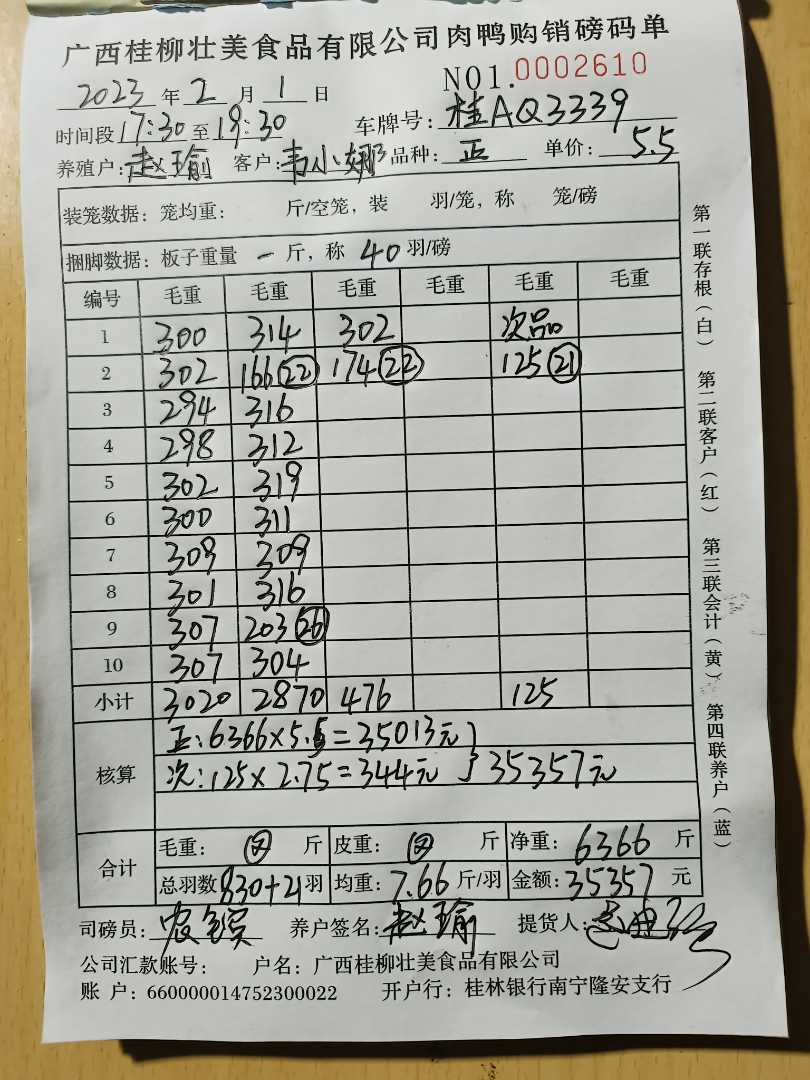 广西桂柳壮美食品有限公司肉鸭购销磅码单
2023 年 2 月 1 日 NO1.0002610
时间段 17:30 至 19:30 车牌号: 桂AQ3339
养殖户: 赵瑜 客户: 韦小娜 品种: 正 单价: 5.5
装笼数据: 笼均重: 斤/空笼, 装 羽/笼, 称 笼/磅
捆脚数据: 板子重量 一 斤, 称 40 羽/磅
编号 毛重 毛重 毛重 毛重 毛重 毛重
1 300 314 302 次品
2 302 166(22) 174(22) 125(21)
3 294 316
4 298 312
5 302 319
6 300 311
7 309 309
8 301 316
9 307 203(26)
10 307 304
小计 3020 2870 476 125
核算 正:6366×5.5=35013元
次:125×2.75=344元 } 35357元
合计 毛重: 斤 皮重: 斤 净重: 6366 斤
总羽数 830+21 羽 均重: 7.66 斤/羽 金额: 35357 元
司磅员: 养户签名: 赵瑜 提货人:
公司汇款账号: 户名: 广西桂柳壮美食品有限公司
账 户: 660000014752300022 开户行: 桂林银行南宁隆安支行
第一联存根(白) 第二联客户(红) 第三联会计(黄) 第四联养户(蓝)